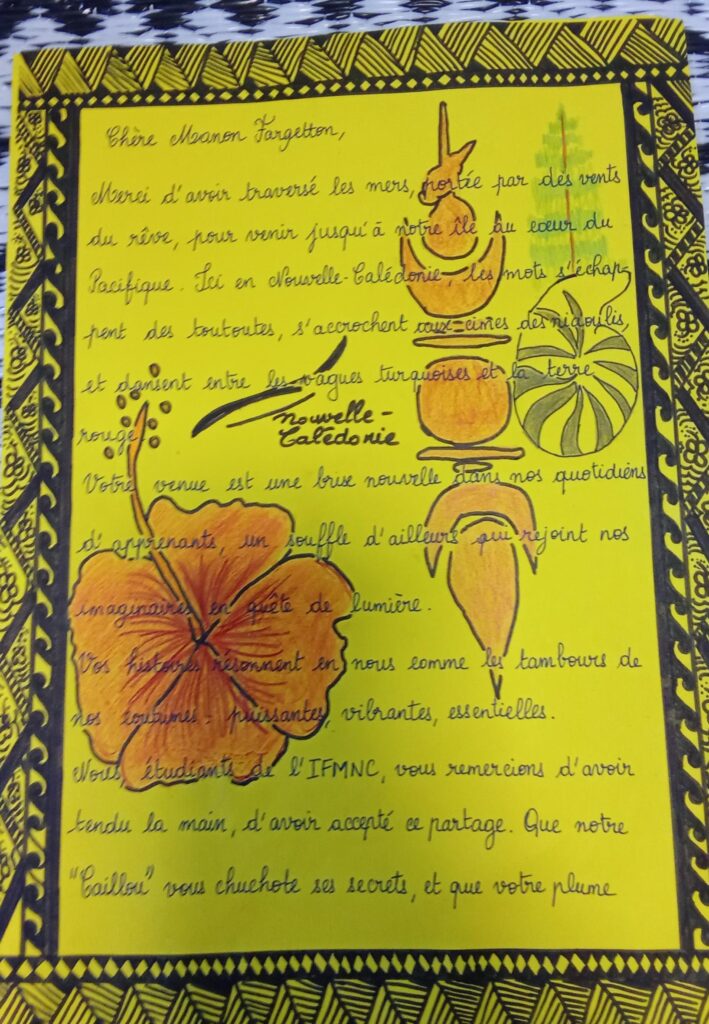 Chère Manon Fargetton,
Merci d'avoir traversé les mers, portée par des vents
du rêve, pour venir jusqu'à notre île au cœur du
Pacifique. Ici en Nouvelle-Calédonie, les mots s'échap-
pent des toutoutes, s'accrochent aux cimes des niaoulis,
et dansent entre les vagues turquoises et la terre
rouge.
Nouvelle-
Calédonie
Votre venue est une brise nouvelle dans nos quotidiens
d'apprenants, un souffle d'ailleurs qui rejoint nos
imaginaires en quête de lumière.
Vos histoires résonnent en nous comme les tambours de
nos coutumes : puissantes, vibrantes, essentielles.
Nous, étudiants de l'IFMNC, vous remercions d'avoir
tendu la main, d'avoir accepté ce partage. Que notre
"Caillou" vous chuchote ses secrets, et que votre plume